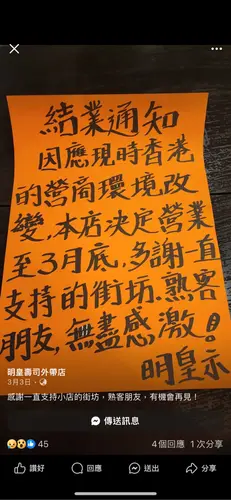 結業通知
因應現時香港
的營商環境改
變,本店決定營業
至3月底,多謝一直
支持的街坊.熟客
朋友,無盡感激!
明皇示
明皇壽司外帶店
3月3日 ·
感謝一直支持小店的街坊，熟客朋友，有機會再見！
傳送訊息
45
4個回應 1次分享
讚好
回應
送出
分享